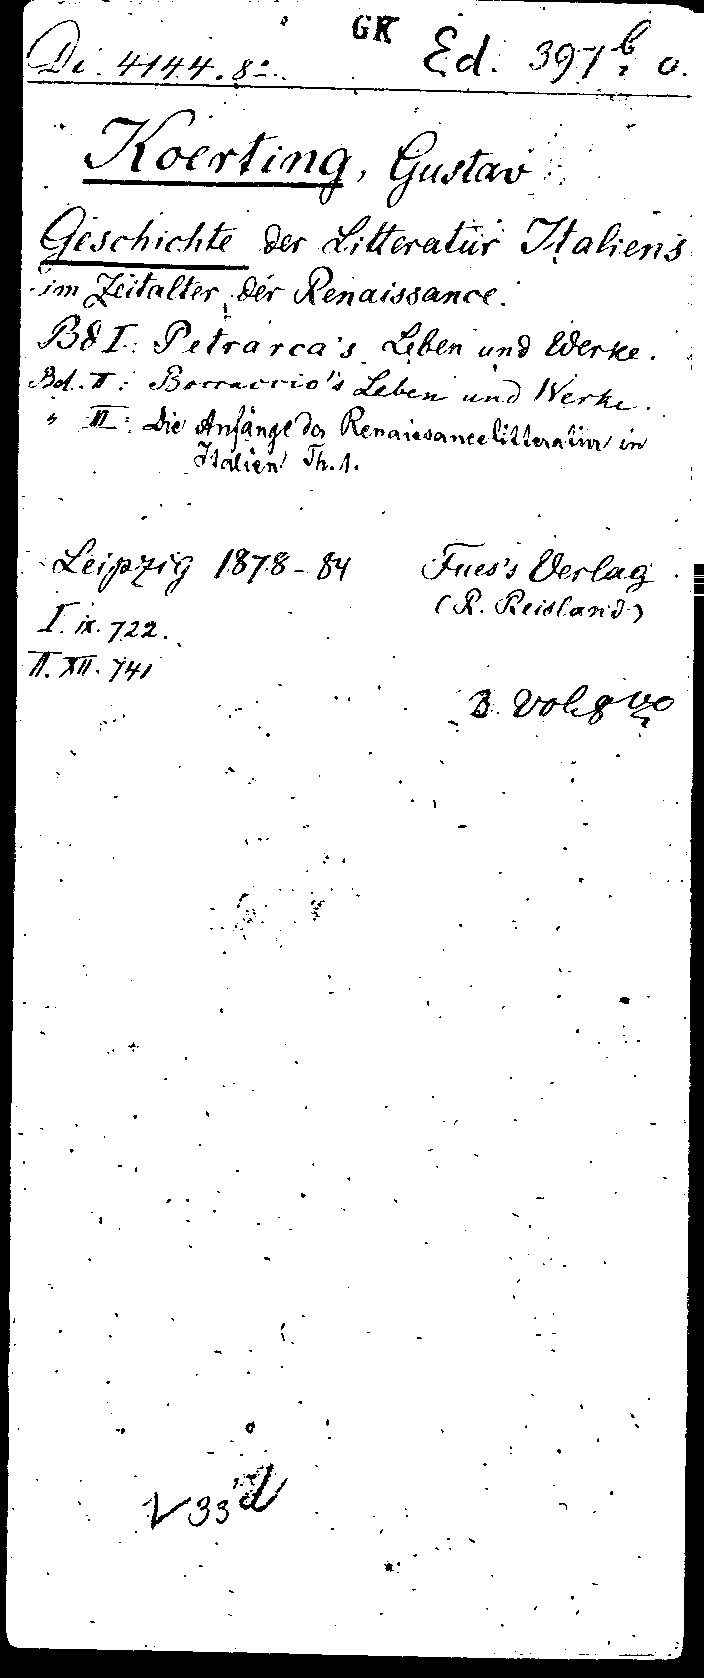 GK
Di. 4144. 8º. Ed. 397 b, o.
Koerting, Gustav
Geschichte der Litteratur Italiens
im Zeitalter der Renaissance.
Bd I: Petrarca's Leben und Werke.
Bd. II: Boccaccio's Leben und Werke.
" III: Die Anfänge der Renaissancelitteratur in
Italien Th. 1.
Leipzig 1878-84 Fues's Verlag
(R. Reisland)
I. IX. 722.
II. XII. 741
3. Vol. 8vo
V 33 d